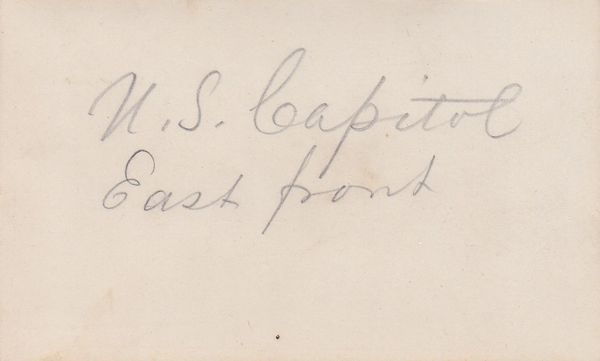 U.S. Capitol
East front